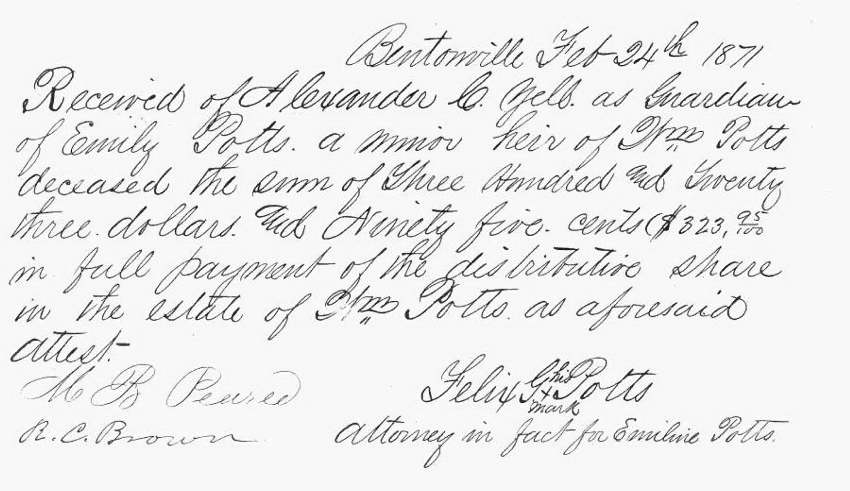 Bentonville Feb 24th 1871
Received of Alexander C. Yell. as Guardian
of Emily Potts. a minor heir of Wm Potts
deceased the sum of Three Hundred and Twenty
three. dollars. and Ninety five. cents ($323,95/100
in full payment of the distributive share
in the estate of Wm Potts. as aforesaid
Attest.-
Felix G his x mark Potts
M B
R. C. Brown
Attorney in fact for Emiline Potts.